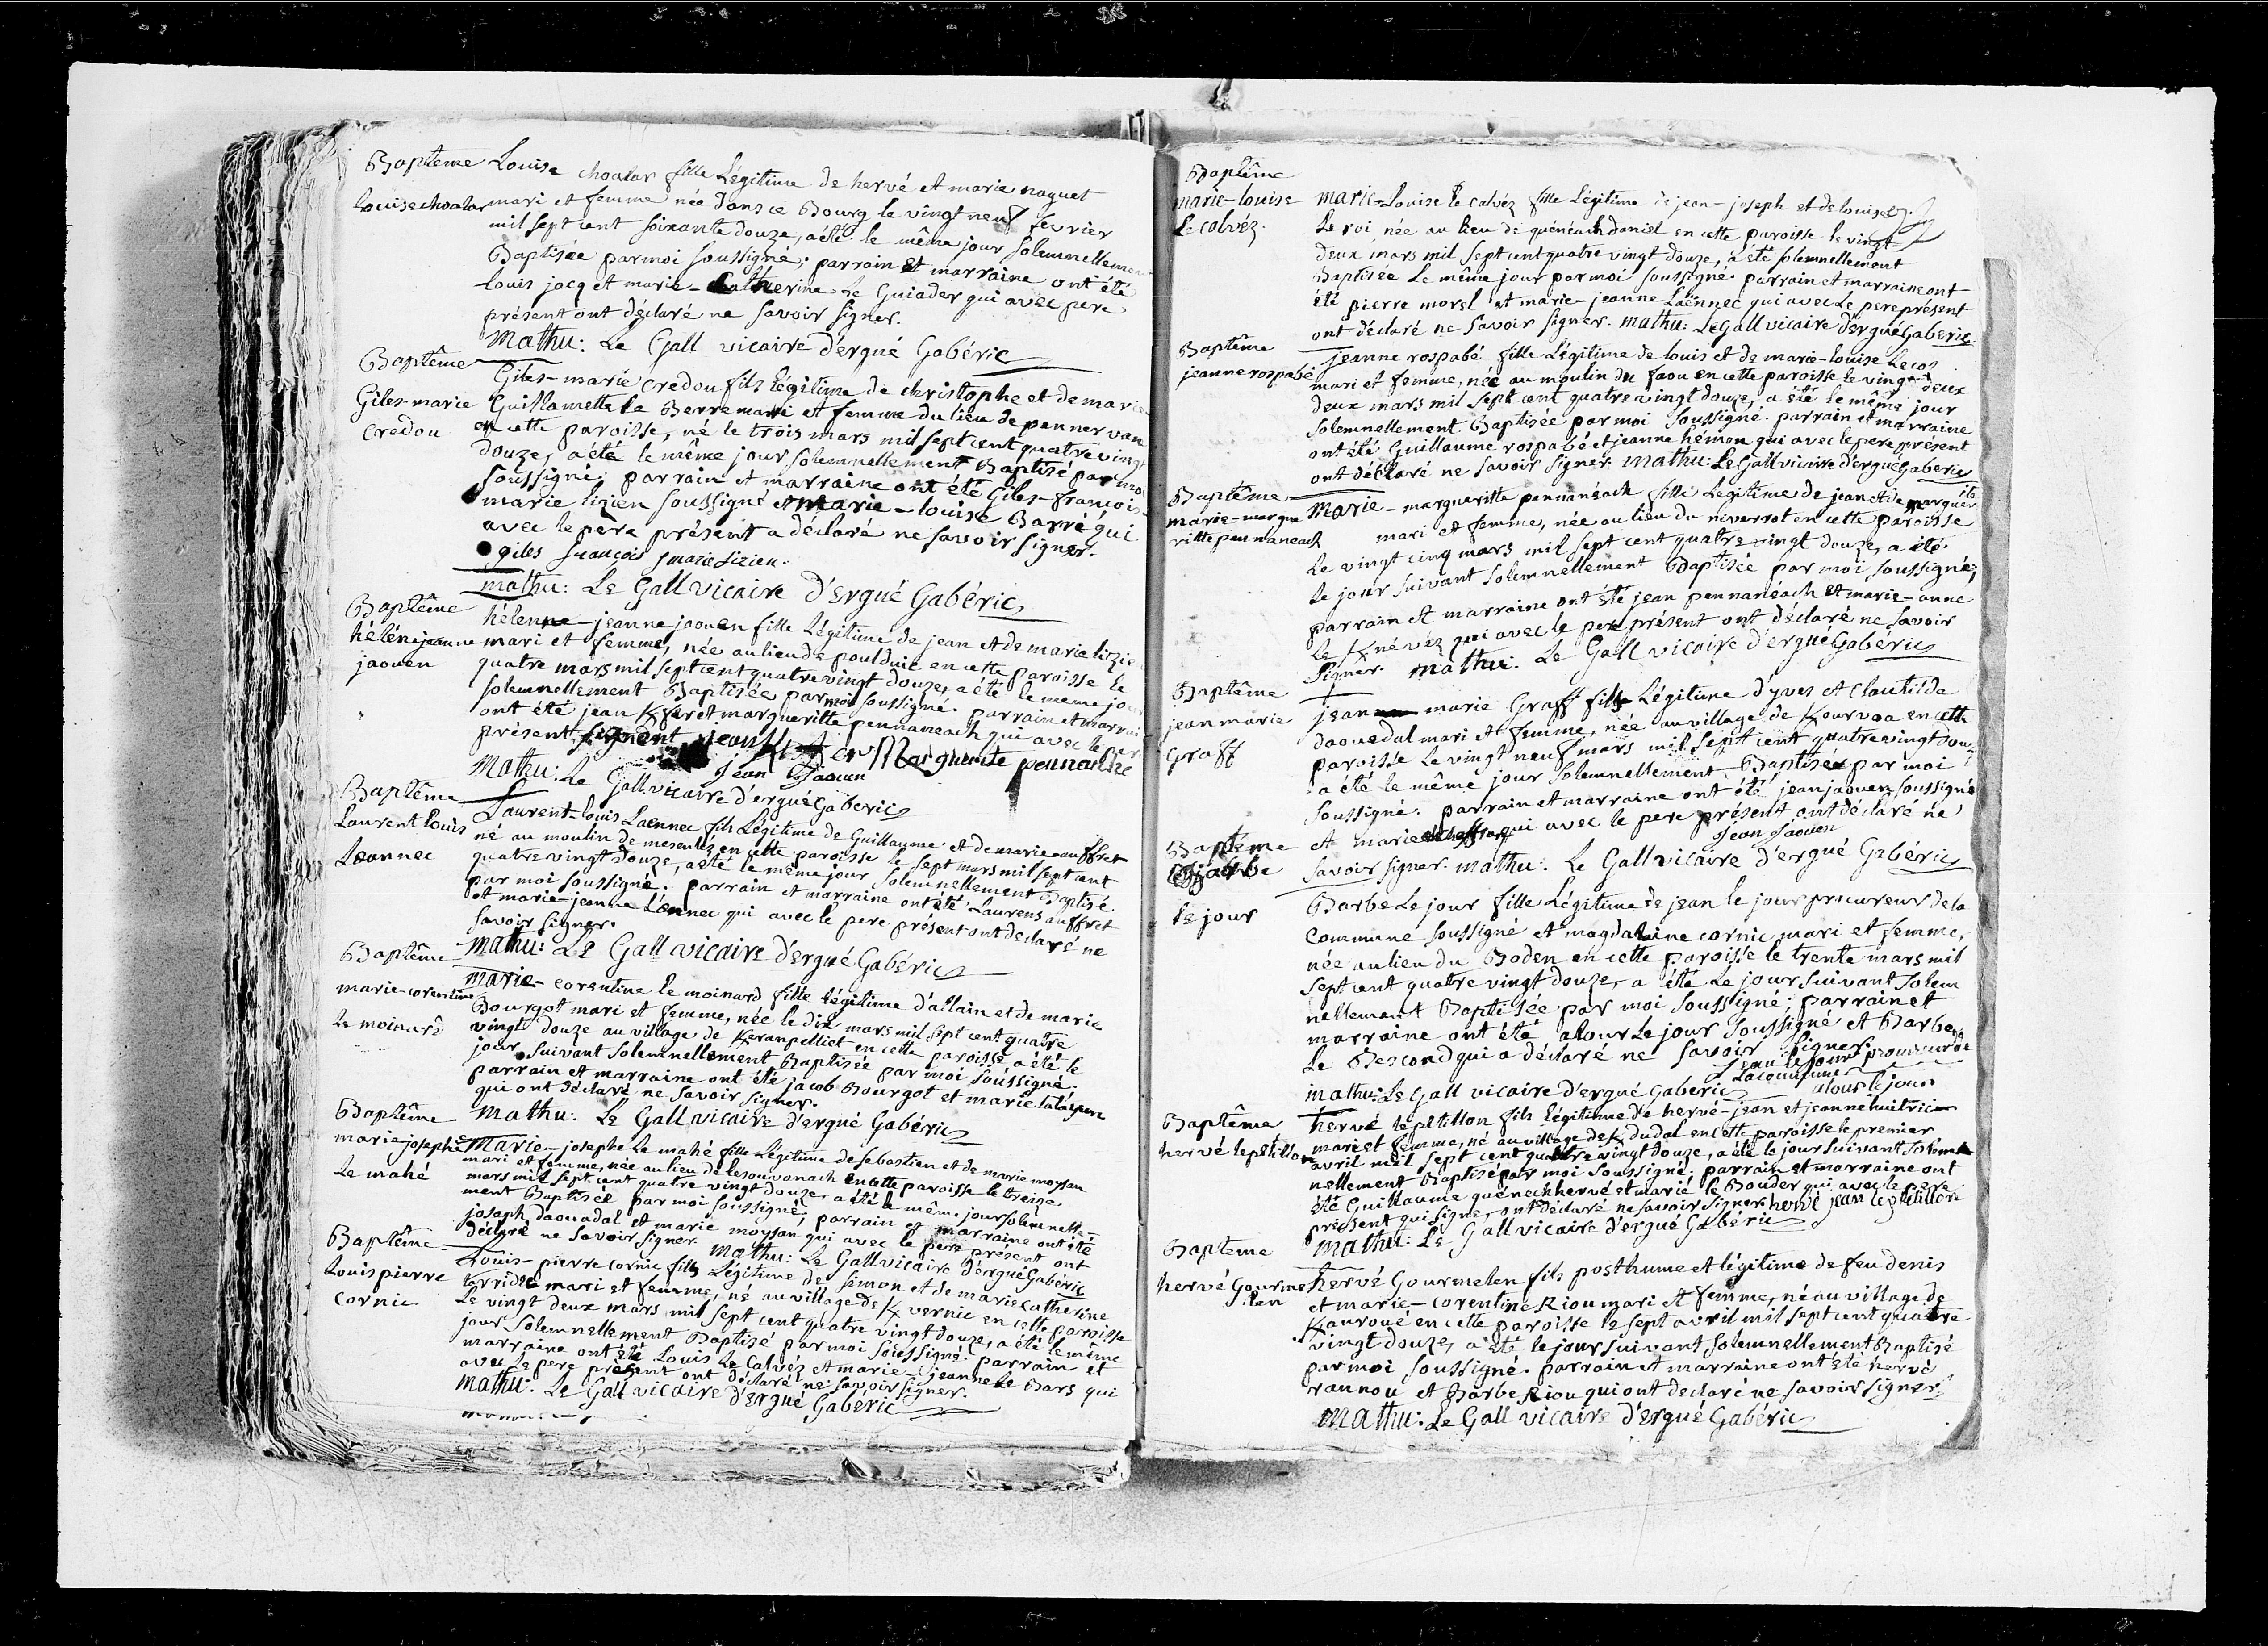 Baptême
Louise choalar
Louise choalar fille Légitime de hervé et marie naguet
mari et femme née dans ce Bourg le vingt neuf fevrier
mil sept cent soixante douze, a été le même jour solemnellement
Baptisée par moi soussigné; parrain et marraine ont été
Louis jacq et marie-Catherine Le Guiader qui avec pere
présent ont déclaré ne savoir signer.
Mathu: Le Gall vicaire d'ergué Gabéric
Baptême
Giles-marie
Credou
Giles-marie Credou fils légitime de christophe et de marie
Guillamette le Berre mari et femme du lieu de penner van
en cette paroisse, né le trois mars mil sept cent quatre vingt
douze, a été le même jour solemnellement Baptisé par moi
soussigné; parrain et marraine ont été Giles-françois
marie lizien soussigné et marie-louise Barré qui
avec le pere présent a déclaré ne savoir signer.
giles françois marie Lizien.
mathu: Le Gall vicaire d'ergué Gabéric
Baptême
hélène jeanne
jaouen
hélenne-jeanne jaouen fille Légitime de jean et de marie lizien
mari et femme, née au lieu de poulduic en cette paroisse le
quatre mars mil sept cent quatre vingt douze, a été le même jour
solemnellement Baptisée par moi soussigné. parrain et marrai
ont été jean et margueritte pennaneach qui avec le per
présent signent Marguerite pennaches
Mathu: Le Gall vicaire d'ergué Gaberic
Jean Jaouen
Baptême
Laurent Louis
Leannec
Laurent-Louis Laennec fils Légitime de Guillaume et de marie auffret
né au moulin de mesentez en cette paroisse le sept mars mil sept cent
quatre vingt douze, a été le même jour solemnellement Baptisé
par moi soussigné. parrain et marraine ont été Laurens auffret
et marie-jeanne Lennec qui avec le pere présent ont déclaré ne
savoir signer.
Mathu: Le Gall vicaire d'ergué Gabéric
Baptême
marie-corentine
le moinard
marie-corentine le moinard fille légitime d'allain et de marie
Bourgot mari et femme, née le dix mars mil sept cent quatre
vingt douze au village de Keranpelliet en cette paroisse a été le
jour suivant solemnellement Baptisée par moi soussigné.
parrain et marraine ont été jacob Bourgot et marie
qui ont déclaré ne savoir signer.
Mathu: Le Gall vicaire d'ergué Gabéric
Baptême
marie josephe
Le mahé
Marie-josephe Le mahé fille Légitime de sebastien et de marie moysan
mari et femme, née au lieu de Lesouvanach en cette paroisse le treize
mars mil sept cent quatre vingt douze, a été le même jour solemnelle-
ment Baptisée par moi soussigné, parrain et marraine ont été
joseph daouadal et marie moysan qui avec le pere présent ont
déclaré ne savoir signer. Mathu: Le Gall vicaire d'ergué Gabéric
Baptême
Louis pierre
Cornic
Louis-pierre cornic fils Légitime de simon et de marie catherine
Corridec mari et femme, né au village de K vernic en cette paroisse
le vingt deux mars mil sept cent quatre vingt douze, a été le même
jour solemnellement Baptisé par moi soussigné. parrain et
marraine ont été Louis Le Calvéz et marie-jeanne Le Bars qui
avec le pere présent ont déclaré ne savoir signer.
Mathu: Le Gall vicaire d'ergué Gabéric
Baptême
marie-louise
Le calvéz.
Marie-Louise le calvéz fille Légitime de jean-joseph et de louise
Le roi née au lieu de quénéach daniel en cette paroisse le vingt
deux mars mil sept cent quatre vingt douze, a été solemnellement
Baptisée le même jour par moi soussigné. parrain et marraine ont
été pierre morel et marie-jeanne Laënnec qui avec le pere présent
ont déclaré ne savoir signer. Mathu: Le Gall vicaire d'ergué Gaberic.
Baptême
jeanne rospabé
jeanne rospabé fille Légitime de louis et de marie-louise Lecos
mari et femme, née au moulin du faou en cette paroisse le vingt-deux
deux mars mil sept cent quatre vingt douze, a été le même jour
solemnellement Baptisée par moi soussigné. parrain et marraine
ont été Guillaume rospabé et jeanne hémon qui avec le pere présent
ont déclaré ne savoir signer. Mathu: Le Gall vicaire d'ergué Gaberic
Baptême
marie-margue
ritte pennaneach
Marie-margueritte pennanéach fille Légitime de jean et de marguerite
mari et femme, née au lieu du niverrot en cette paroisse
le vingt cinq mars mil sept cent quatre vingt douze, a été
le jour suivant solemnellement Baptisée par moi soussigné;
parrain et marraine ont été jean pennanéach et marie-anne
Le K/névéz qui avec le pere présent ont déclaré ne savoir
signer. Mathu: Le Gall vicaire d'ergué Gabéric
Baptême
jean marie
Graff
jean marie Graff fils Légitime d'yves et Clautilde
daouedal mari et femme, née au village de K/ourvoa en cette
paroisse le vingt neuf mars mil sept cent quatre vingt douze
a été le même jour solemnellement Baptisée par moi
soussigné. parrain et marraine ont été jean jaouen soussigné
et marie qui avec le pere présent ont déclaré ne
savoir signer. Mathu: Le Gall vicaire d'ergué Gabéric
Jean Jaouen
Baptême
Barbe
le jour
Barbe Le jour fille Légitime de jean le jour procureur de la
Commune soussigné et magdalaine cornic mari et femme,
née au lieu du Boden en cette paroisse le trente mars mil
sept cent quatre vingt douze, a été le jour suivant solem
nellement Baptisée par moi soussigné; parrain et
marraine ont été alour Le jour soussigné et Barbe
Le Bescond qui a déclaré ne savoir signer.
Jean le jour procureur de
Lacommune
mathu: Le Gall vicaire d'ergué Gaberic alour le jour
Baptême
hervé le petillon
hervé le petillon fils légitime de hervé-jean et jeanne huitric
mari et femme, né au village de K/dudal en cette paroisse le premier
avril mil sept cent quatre vingt douze, a été le jour suivant solem
nellement Baptisé par moi soussigné. parrain et marraine ont
été Guillaume quénechhervé et marie le Bouder qui avec le pere
présent qui signe, ont déclaré ne savoir signer hervé jean le petillon
Mathu: Le Gall vicaire d'ergué Gabéric
Baptême
hervé Gourme
len
hervé Gourmelen fils posthume et légitime de feu denis
et marie-corentine Riou mari et femme, né au village de
K/ouroué en cette paroisse le sept avril mil sept cent quatre
vingt douze, a été le jour suivant solemnellement Baptisé
par moi soussigné. parrain et marraine ont été hervé
rannou et Barbe Riou qui ont déclaré ne savoir signer.
Mathu: Le Gall vicaire d'ergué Gabéric